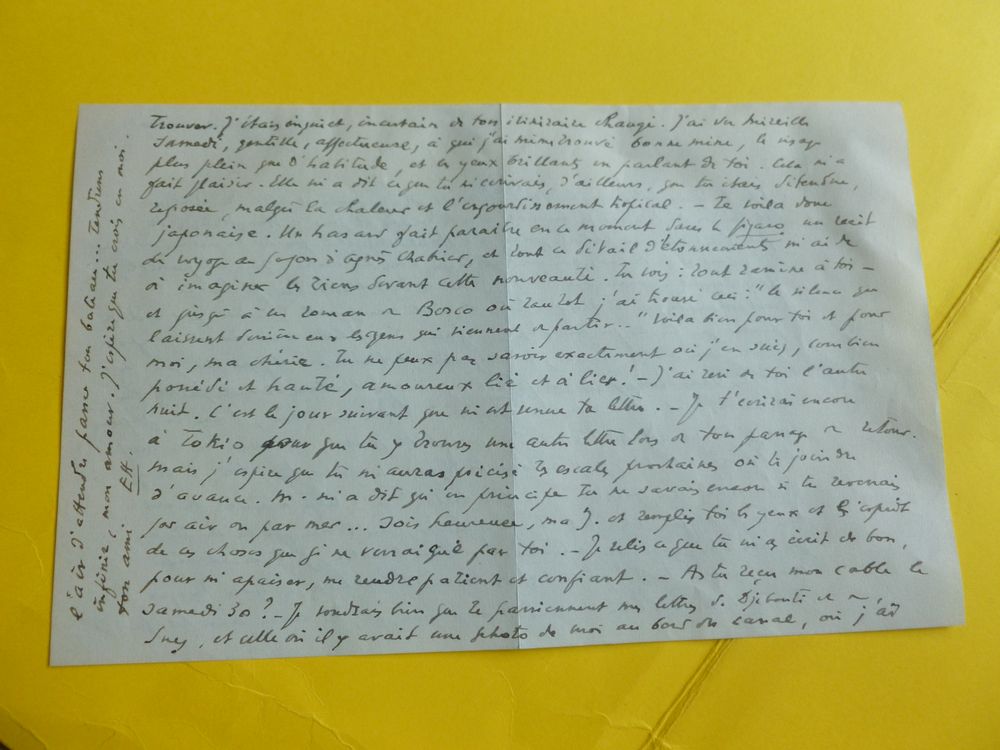 trouver. J'étais inquiet, incertain de ton itinéraire changé. J'ai vu Mireille
samedi, gentille, affectueuse, à qui j'ai même trouvé bonne mine, le visage
plus plein que d'habitude, et les yeux brillants en parlant de toi. Cela m'a
fait plaisir. Elle m'a dit ce que tu m'écrivais, d'ailleurs, que tu étais détendue,
reposée, malgré la chaleur et l'engourdissement tropical. – Te voilà donc
japonaise. Un hasard fait paraître en ce moment dans le Figaro un récit
de voyage au Japon d'agnès Chabrier, et dont ce détail d'étonnements m'aide
à imaginer les tiens devant cette nouveauté. Tu vois : tout ramène à toi –
et jusqu'à un roman de Bosco où tantôt j'ai trouvé ceci : "le silence que
laissent derrière eux les gens qui viennent de partir.." Voilà bien pour toi et pour
moi, ma chérie. Tu ne peux pas savoir exactement où j'en suis, combien
possédé et hanté, amoureux lié et à lier ! – J'ai rêvé de toi l'autre
nuit. C'est le jour suivant que m'est venue ta lettre. – Je t'écrirai encore
à Tokio pour que tu y trouves une autre lettre lors de ton passage de retour.
mais j'espère que tu m'auras précisé tes escales prochaines où te joindre
d'avance. M. m'a dit qu'en principe tu ne savais encore si tu revenais
par air ou par mer... Sois heureuse, ma J. et remplis toi les yeux et l'esprit
de ces choses que je ne verrai que par toi. – Je relis ce que tu m'as écrit de bon,
pour m'apaiser, me rendre patient et confiant. – As tu reçu mon cable le
samedi 30 ? – Je voudrais bien que te parviennent mes lettres de Djibouti et de
Suez, et celle où il y avait une photo de moi au bord du canal, où j'ai
l'air d'attendre passer ton bateau... tendresse
infinie, mon amour. J'espère que tu crois en moi.
ton ami EH.